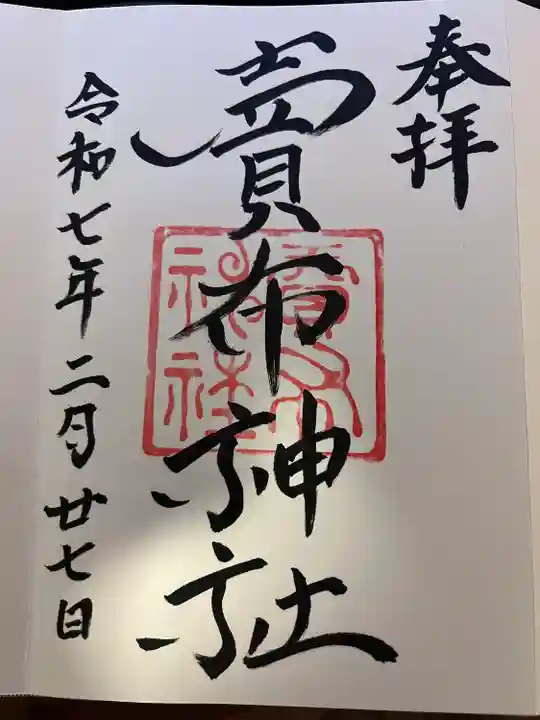 奉拝
賣布神社
令和七年二月廿七日
賣布
神社